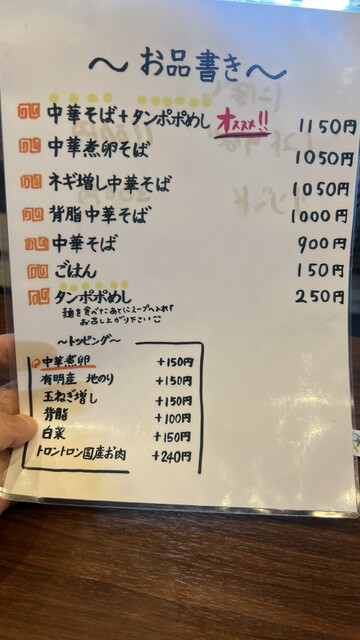 〜お品書き〜
中華そば+タンポポめし オススメ!! 1150円
中華煮卵そば 1050円
ネギ増し中華そば 1050円
背脂中華そば 1000円
中華そば 900円
ごはん 150円
タンポポめし 250円
麺を食べたあとにスープへ入れて
お召し上がり下さい
〜トッピング〜
中華煮卵 +150円
有明産 地のり +150円
玉ねぎ増し +150円
背脂 +100円
白菜 +150円
トロントロン国産お肉 +240円